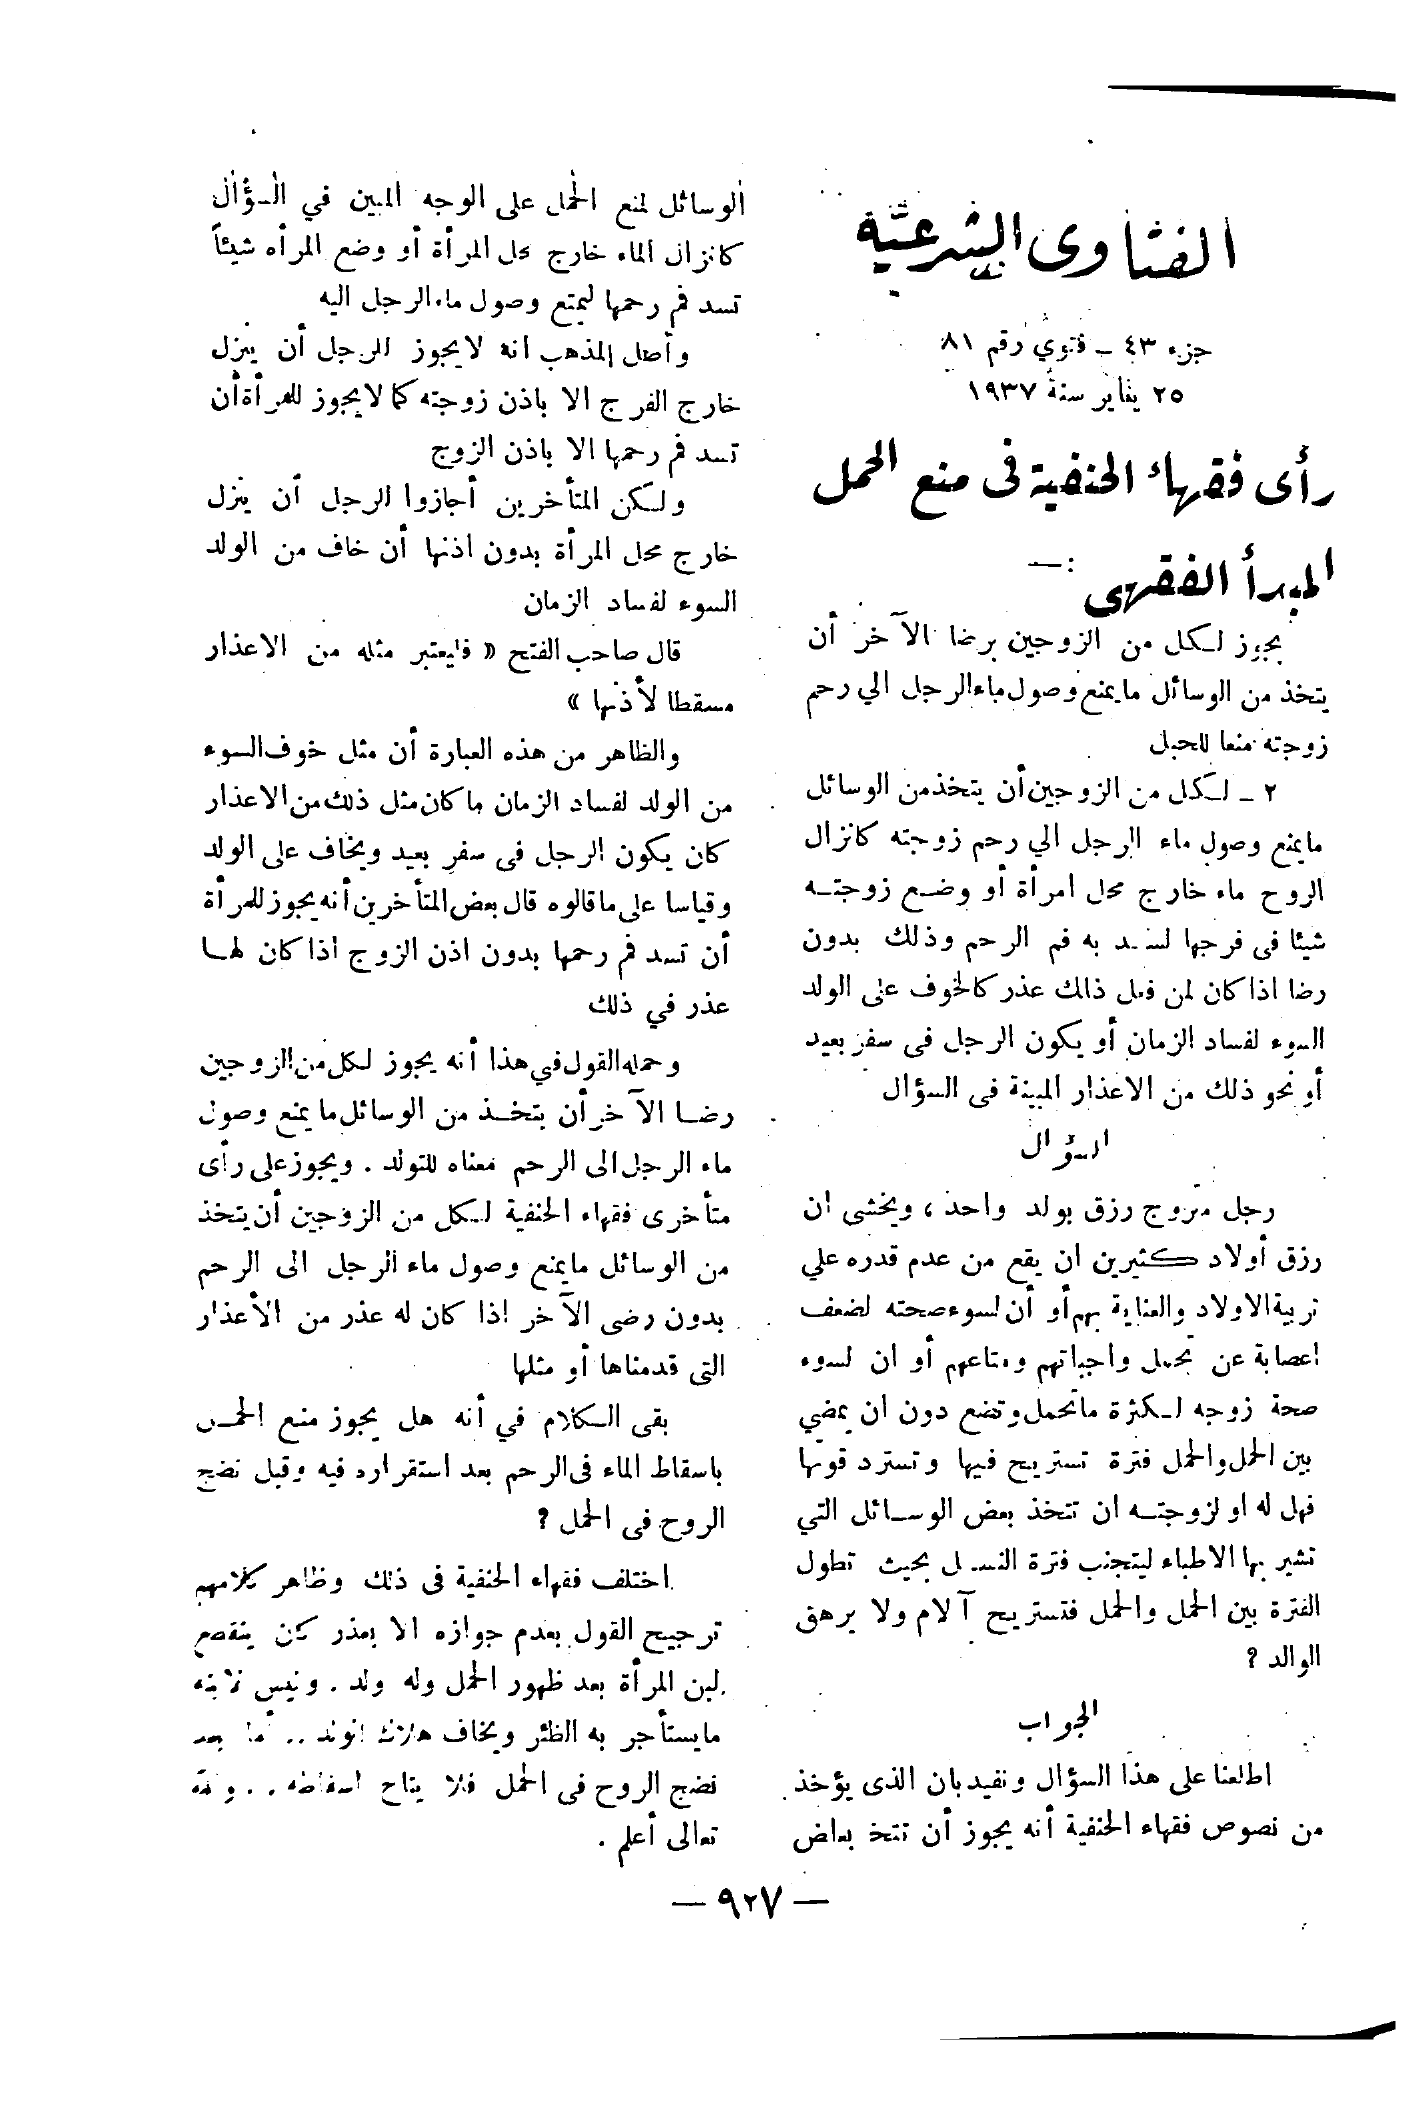 الفتاوى الشرعية
جزء ٤٣ ـ فتوي رقم ٨١
٢٥ يناير سنة ١٩٣٧
رأى فقهاء الحنفية فى منع الحمل
المبدأ الفقهى :—
يجوز لكل من الزوجين برضا الآخر أن
يتخذ من الوسائل ما يمنع وصول ماء الرجل الي رحم
زوجته منعا للحبل
٢ ـ لكل من الزوجين أن يتخذ من الوسائل
ما يمنع وصول ماء الرجل الي رحم زوجته كانزال
الروح ماء خارج محل امرأة أو وضع زوجته
شيئا فى فرجها لسد به فم الرحم وذلك بدون
رضا اذا كان لمن فعل ذالك عذر كالخوف على الولد
السوء لفساد الزمان أو يكون الرجل فى سفر بعيد
أو نحو ذلك من الاعذار المبينة فى السؤال
السؤال
رجل متزوج رزق بولد واحد ، ويخشى ان
رزق أولاد كثيرين ان يقع من عدم قدره علي
تربية الاولاد والعناية بهم أو أن لسوء صحته لضعف
اعصابة عن تحمل واجباتهم ومتاعهم أو ان لسوء
صحة زوجه لكثرة ما تحمل وتضع دون ان يمضي
بين الحمل والحمل فترة تستريح فيها وتسترد قوتها
فهل له او لزوجته ان تتخذ بعض الوسائل التي
تشير بها الاطباء ليتجنب فترة النسل بحيث تطول
الفترة بين الحمل والحمل فتستريح آلام ولا يرهق
الوالد ؟
الجواب
اطلعنا على هذا السؤال ونفيد بان الذى يؤخذ
من نصوص فقهاء الحنفية أنه يجوز أن تتخ بعاض
الوسائل لمنع الحمل على الوجه المبين في السؤال
كانزال الماء خارج محل المرأة أو وضع المرأه شيئاً
تسد فم رحمها ليمتع وصول ماء الرجل اليه
وأصل المذهب انه لا يجوز الرجل أن ينزل
خارج الفرج الا باذن زوجته كما لا يجوز للمرأة أن
تسد فم رحمها الا باذن الزوج
ولكن المتأخرين أجازوا الرجل أن ينزل
خارج محل المرأة بدون اذنها أن خاف من الولد
السوء لفساد الزمان
قال صاحب الفتح « فليعتبر مثله من الاعذار
مسقطا لأذنها »
والظاهر من هذه العبارة أن مثل خوف السوء
من الولد لفساد الزمان ما كان مثل ذلك من الاعذار
كان يكون الرجل فى سفر بعيد ويخاف على الولد
وقياسا على ما قالوه قال بعض المتأخرين أنه يجوز للمرأة
أن تسد فم رحمها بدون اذن الزوج اذا كان لها
عذر في ذلك
وجمله القول في هذا أنه يجوز لكل من الزوجين
رضا الآخر أن يتخذ من الوسائل ما يمنع وصول
ماء الرجل الى الرحم معناه للتولد . ويجوز على رأى
متأخرى فقهاء الحنفية لكل من الزوجين أن يتخذ
من الوسائل ما يمنع وصول ماء الرجل الى الرحم
بدون رضى الآخر اذا كان له عذر من الأعذار
التى قدمناها أو مثلها
بقى الكلام في أنه هل يجوز منع الحمل
باسقاط الماء فى الرحم بعد استقراره فيه وقبل نضج
الروح فى الحمل ؟
اختلف فقهاء الحنفية فى ذلك وظاهر كلامهم
ترجيح القول بعدم جوازه الا بعذر كان ينقطع
لبن المرأة بعد ظهور الحمل وله ولد . وليس لابنه
ما يستأجر به الظئر ويخاف هلاك الولد .. أما بعد
نضج الروح فى الحمل فلا يتاح اسقاطه . . والله
تعالى أعلم .
— ٩٢٧ —